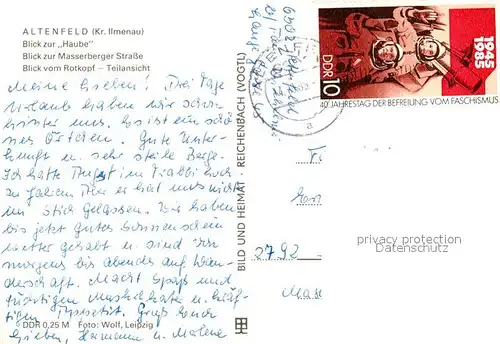 ALTENFELD (Kr. Ilmenau)
Blick zur „Haube"
Blick zur Masserberger Straße
Blick vom Rotkopf – Teilansicht
Meine Lieben! Drei Tage
Urlaub haben wir schon
hinter uns. Es ist ein schö-
nes Örtchen. Gute Unter-
kunft u. sehr steile Berge.
Ich hatte Angst im Trabbi hoch
zu fahren. Aber er hat uns nicht
im Stich gelassen. Wir haben
bis jetzt gutes Sonnenschein
wetter gehabt u. sind von
morgens bis abends auf Wan-
derschaft. Macht Spaß und
tüchtigen Muskelkater u. kräf-
tigen Appetit. Grüß Euch
Ihr Lieben, Hermann u.
DDR 0,25 M Foto: Wolf, Leipzig
BILD UND HEIMAT REICHENBACH (VOGTL)
1985
DDR 10
40. JAHRESTAG DER BEFREIUNG VOM FASCHISMUS
2792
privacy protection
Datenschutz